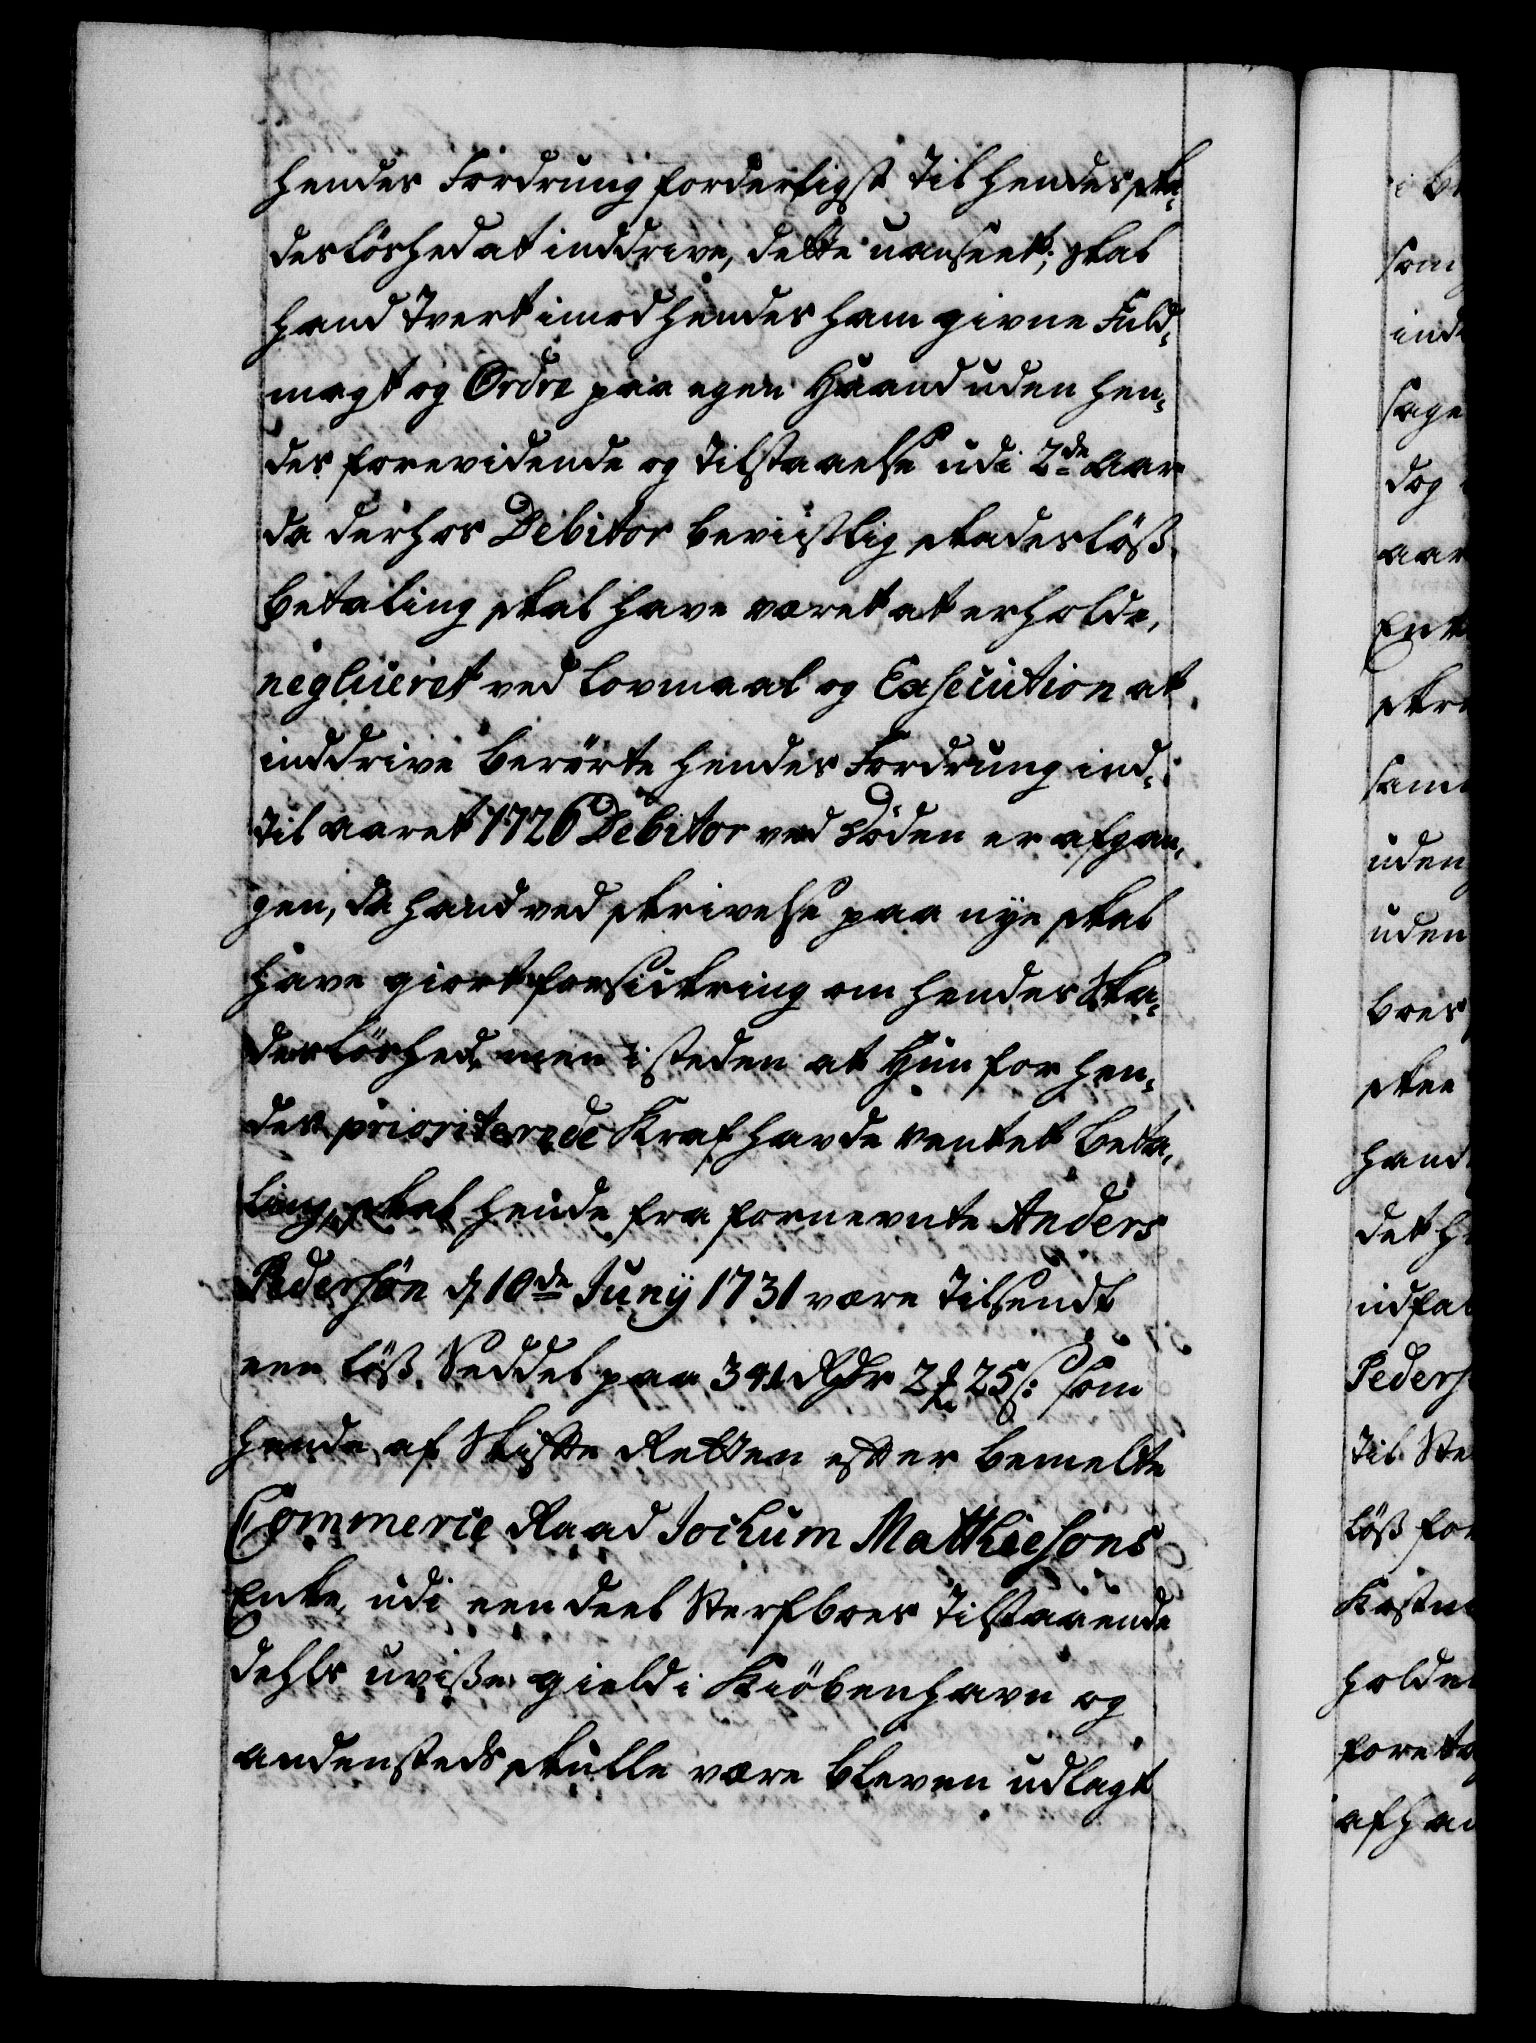 hendes Fordrung forderligst til hendes ska,
desløshed at inddrive, dette uanseet, skal
hand tvert imod hendes ham givne Fuld,
magt og Ordre paa egen Haand uden hen,
des forevidende og tilstaaelse udi 2de Aar
da derhos Debitor beviislig skadesløss
betaling skal have været at erholde,
negliieret ved Lovmaal og Execution at
inddrive berørte hendes Fordrung ind,
til aaret 1726 Debitor ved døden er afgan,
gen, da hand ved skrivelse paa nye skal
have giort forsickring om hendes Ska,
desløshed, men i steden at Hun for hen,
des prioriterede Kraf havde ventet beta,
ling, skal hende fra fornevnte Anders
Pedersøn d 10de Junij 1731 være tilsendt
een løss Seddel paa 341 Rdr 2 ₰ 25 s: som
hende af Skifte Retten efter bemelte
Commerie Raad Jochum Matthiesons
Enke, udi een deel Sterfboer tilstaaende
dehls uvisse gield i Kiøbenhavn og
andensteds skulle være bleven udlagt
i
som
ind
sage
dog
aar
Enk
skr
sam
uden
uden
boes
skee
hand
det h
udfal
Peders
til Ste
løss for
Kostn
holde
foreta
af han